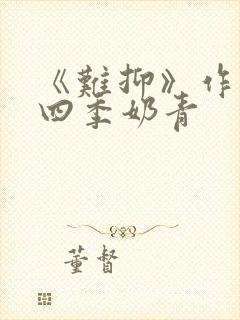 《難抑》作
四季奶青
董督